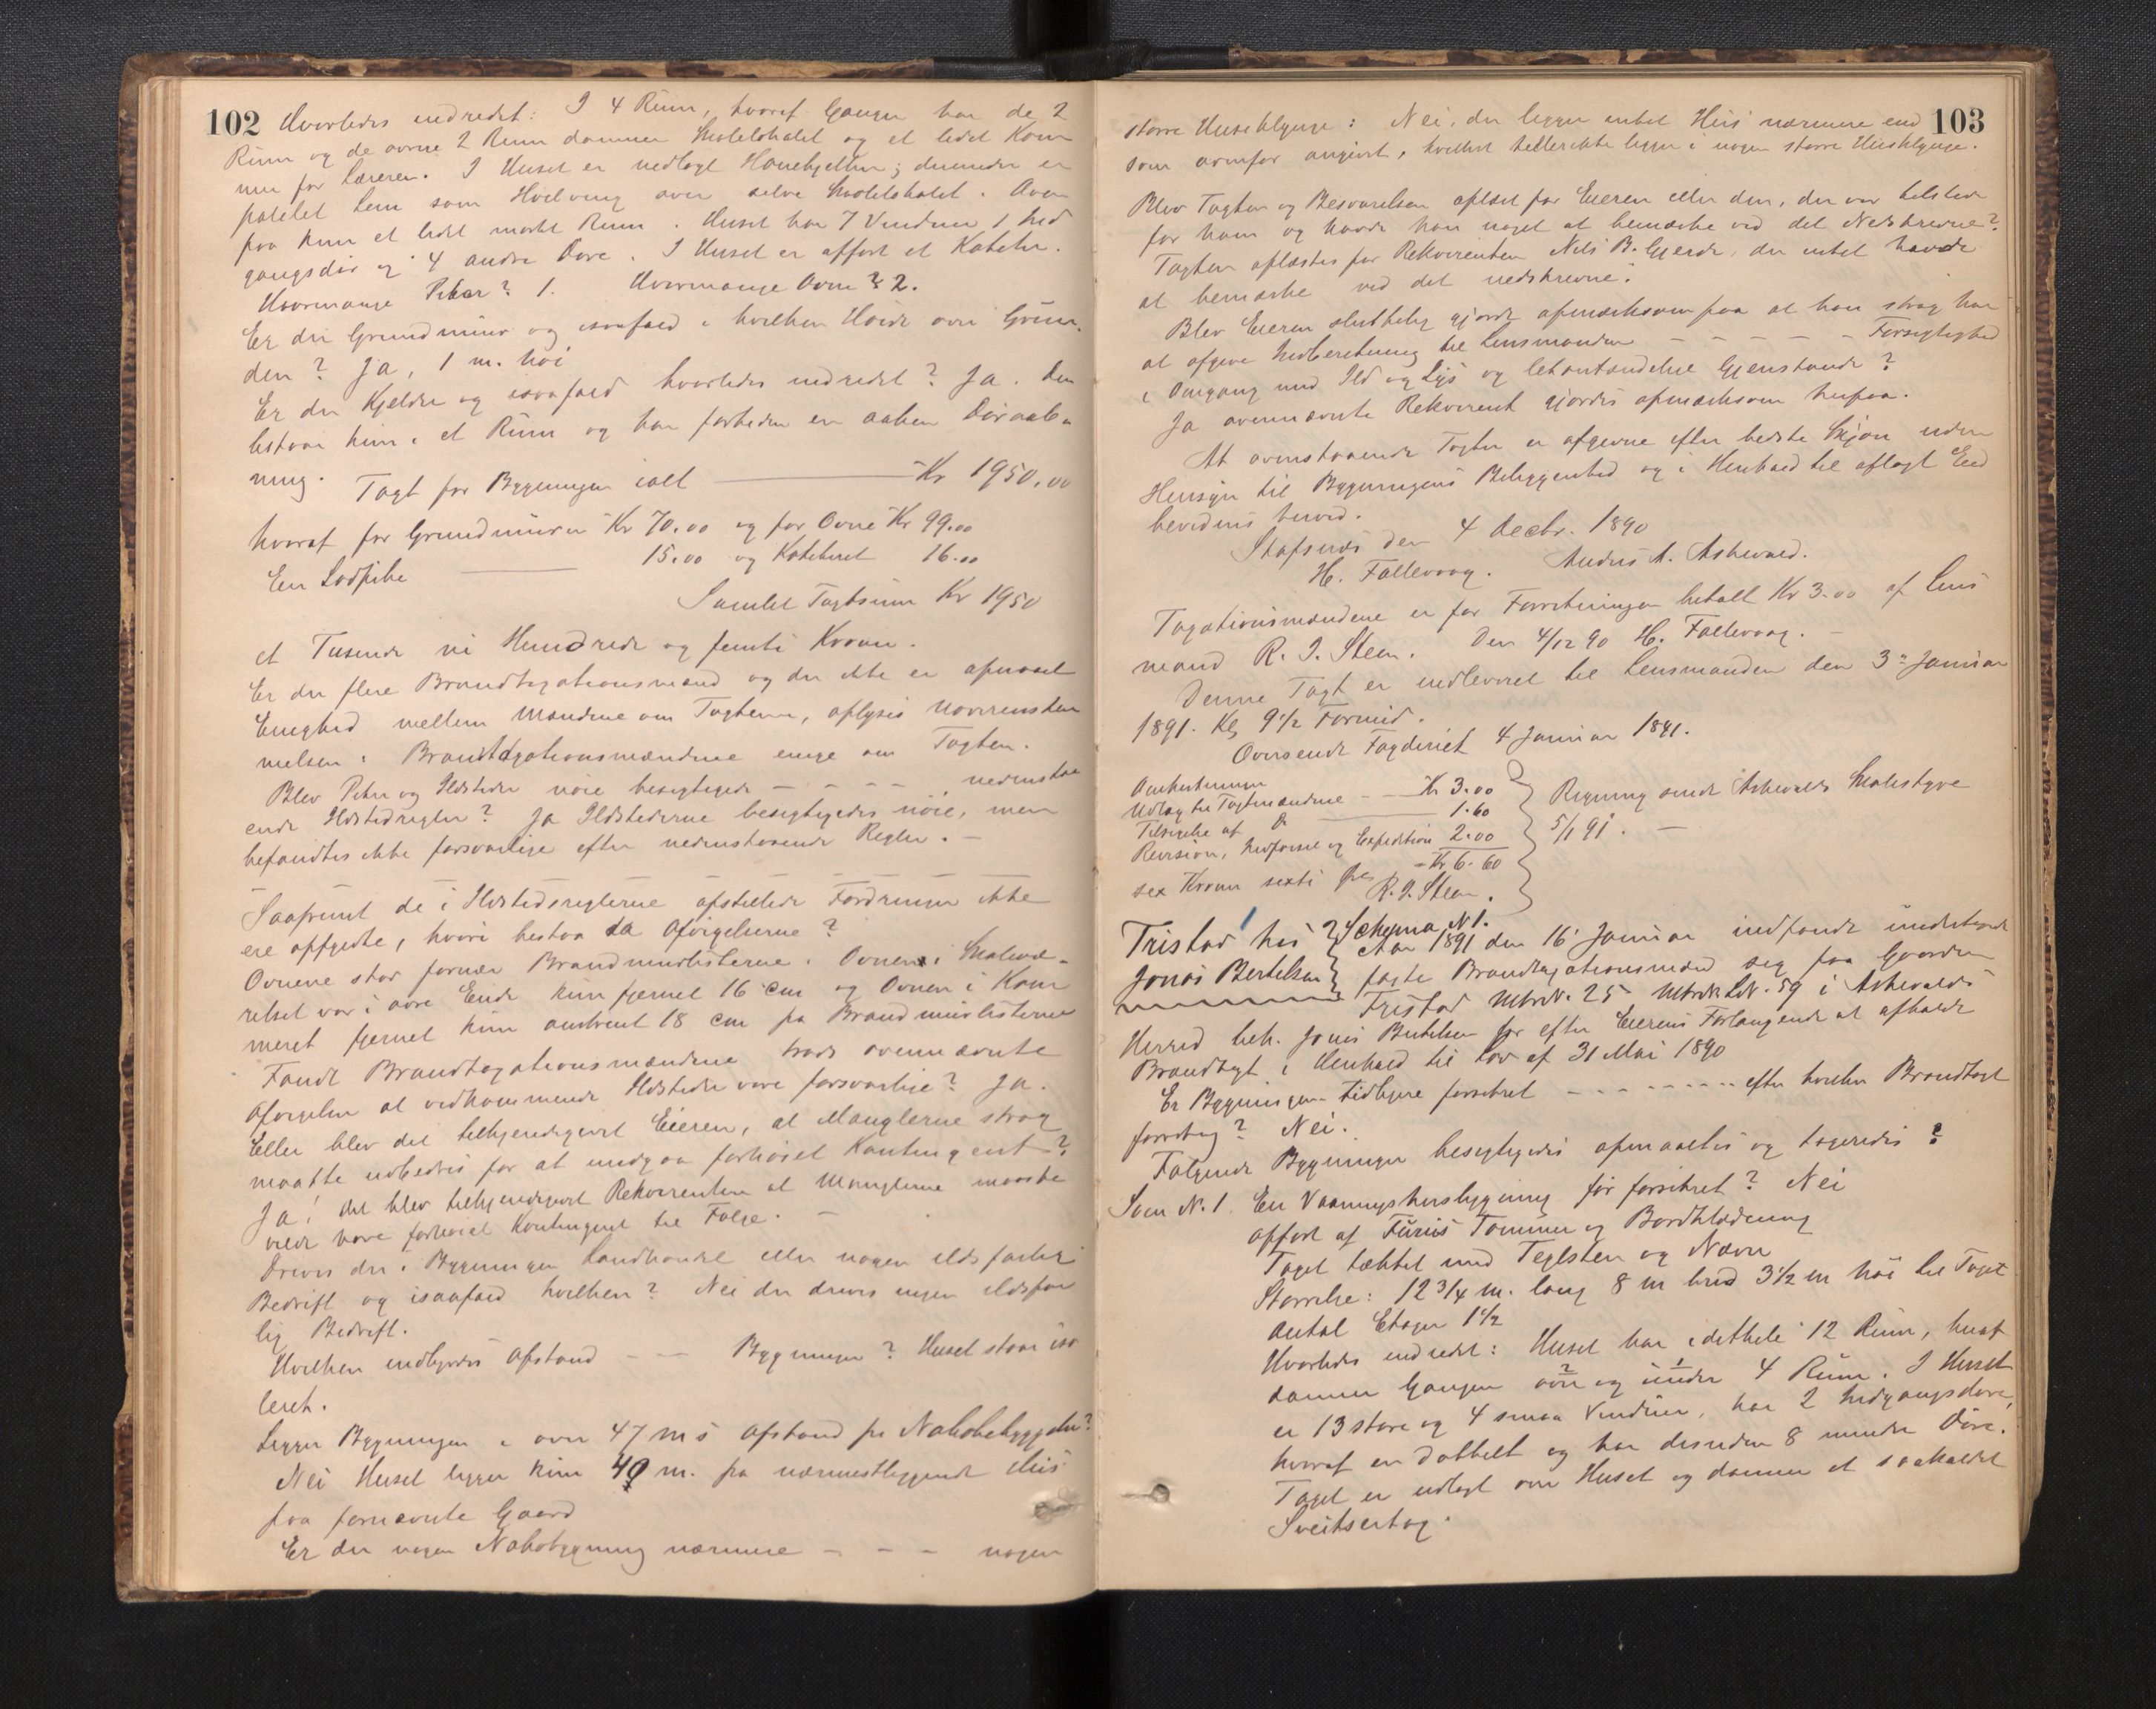 102 Hvorledes indredet: I 4 Rum, hvoraf Gangen har de 2
Rum og de øvrige 2 Rum danner Skolelokalet og et lidet Kam
mer for Læreren. I Huset er nedlagt Hanebjelker; derunder er
panelet Lem som Hvelving over selve Skolelokalet. Oven
paa kun et lidet mørkt Rum. Huset har 7 Vinduer 1 Ind
gangsdør og 4 andre Døre. I Huset er opført et Kateter.
Hvormange Piber? 1. Hvormange Ovne? 2.
Er der Grundmur og isaafald i hvilken Høide over Grun-
den? Ja, 1 m. høi
Er der Kjelder og isaafald hvorledes indredet? Ja. Den
bestaar kun i et Rum og har forneden en aaben Døraab-
ning.
Taxt for Bygningen ialt — Kr 1950.00
hvoraf for Grundmuren Kr 70.00 og for Ovne Kr 99.00
En Lodpibe — 15.00 og Kateteret 16.00
Samlet Taxtsum Kr 1950
et Tusende ni Hundrede og femti Kroner.
Er der flere Brandtaxationsmænd og der ikke er opnaaet
Enighed mellem Mændene om Taxterne, oplyses Uoverensstem
melsen. Brandtaxationsmændene enige om Taxten.
Blev Piber og Ildsteder nøie besigtigede - - - - nedenstaa
ende Ildstedregler? Ja Ildstederne besigtigedes nøie, men
befandtes ikke forsvarlige efter nedenstaaende Regler. -
Saafremt de i Ildstedsreglerne opstillede Fordringer ikke
ere opfyldte, hvori bestaa da Afvigelserne?
Ovnene stod fornær Brandmurlisterne. Ovnen i Skolevæ-
relset var i øvre Ende kun fjernet 16 cm og Ovnen i Kam
meret fjernet kun omtrent 18 cm fra Brandmurlisterne
Fandt Brandtaxationsmændene trods ovennævnte
Afvigelser at vedkommende Ildsteder vare forsvarlige? Ja.
Eller blev det tilkjendegivet Eieren, at Manglerne strax
maatte udbedres for at undgaa forhøiet Kontingent?
Ja! det blev tilkjendegivet Rekvirenten at Manglerne maaske
vilde have forhøiet Kontingent til Følge. -
Drives der i Bygningen Landhandel eller nogen ildsfarlig
Bedrift og isaafald hvilken? Nei der drives ingen ildsfar
lig Bedrift.
Hvilken indbyrdes Afstand - - Bygninger? Huset staar iso
leret.
Ligger Bygningen i over 47 m's Afstand fra Nabobebyggelse?
Nei Huset ligger kun 40 m. fra nærmestliggende Hus
paa fornævnte Gaard
Er der nogen Nabobygning nærmere - - - nogen
103
større Huseklynge: Nei, der ligger intet Hus nærmere end
som ovenfor angivet, hvilket hellerikke ligger i nogen større Husklynge.
Blev Taxten og Besvarelsen oplæst for Eieren eller den, der var tilstede
for ham og havde han noget at bemærke ved det Nedskrevne?
Taxten oplæstes for Rekvirenten Nils B. Gjerde, der intet havde
at bemærke ved det nedskrevne.
Blev Eieren sluttelig gjort opmærksom paa at han strax har
at afgive Indberetning til Lensmanden - - - - - Forsigtighed
i Omgang med Ild og Lys og letantændelige Gjenstande?
Ja ovennævnte Rekvirent gjordes opmærksom herpaa.
At ovenstaaende Taxter er afgivne efter bedste Skjøn uden
Hensyn til Bygningens Beliggenhed og i Henhold til aflagt Eed
bevidnes herved.
Stafsnæs den 4 Decbr. 1890
H. Follevaag. Anders A. Askevold.
Taxationsmændene er for Forretningen betalt Kr 3.00 af Lens
mand R. J. Steen. Den 4/12 90 H. Follevaag. -
Denne Taxt er indleveret til Lensmanden den 3die Januar
1891. Kl 9 1/2 Formid.
Oversendt Fogderiet 4 Januar 1891.
Omkostninger
Udlæg til Taxtmændene — Kr 3.00
Tilsigelse af Do — 1.60
Revision, Indførsel og Expedition 2.00
- Kr 6.60
sex Kroner sexti Øre
R. J. Steen.
Regning sendt Askevolds Skolestyre
5/1 91. -
Tristad hos
Jonas Bertelsen
Schema N 1.
Aar 1891 den 16 Januar indfandt undertegne
fagte Brandtaxationsmænd sig paa Gaarden
Tristad Mtrk. 25 Mtrk. LN. 59 i Askevolds
Herred beh. Jonas Bertelsen for efter Eierens Forlangende at afholde
Brandtaxt i Henhold til Lov af 31 Mai 1890
Er Bygningen tidligere forsikret - - - - - - - efter hvilken Brandtaxt
foretag? Nei.
Følgende Bygninger besigtigedes opmaaltes og taxeredes?
Som N. 1. En Vaaningshusbygning før forsikret? Nei
opført af Furus Tømmer og Bordklædning
Taget tækket med Teglsten og Næver
Størrelse: 12 3/4 m. lang 8 m bred 3 1/2 m høi til Taget
Antal Etager 1 1/2
Hvorledes indredet: Huset har i dethele 12 Rum, hvoraf
danner Gangen ovre og under 4 Rum. I Huset
er 13 store og 4 smaa Vinduer, har 2 Indgangsdøre,
hvoraf en dobbelt og har desuden 8 mindre Døre.
Taget er udlagt over Huset og danner et saakaldet
Sveitsertag.